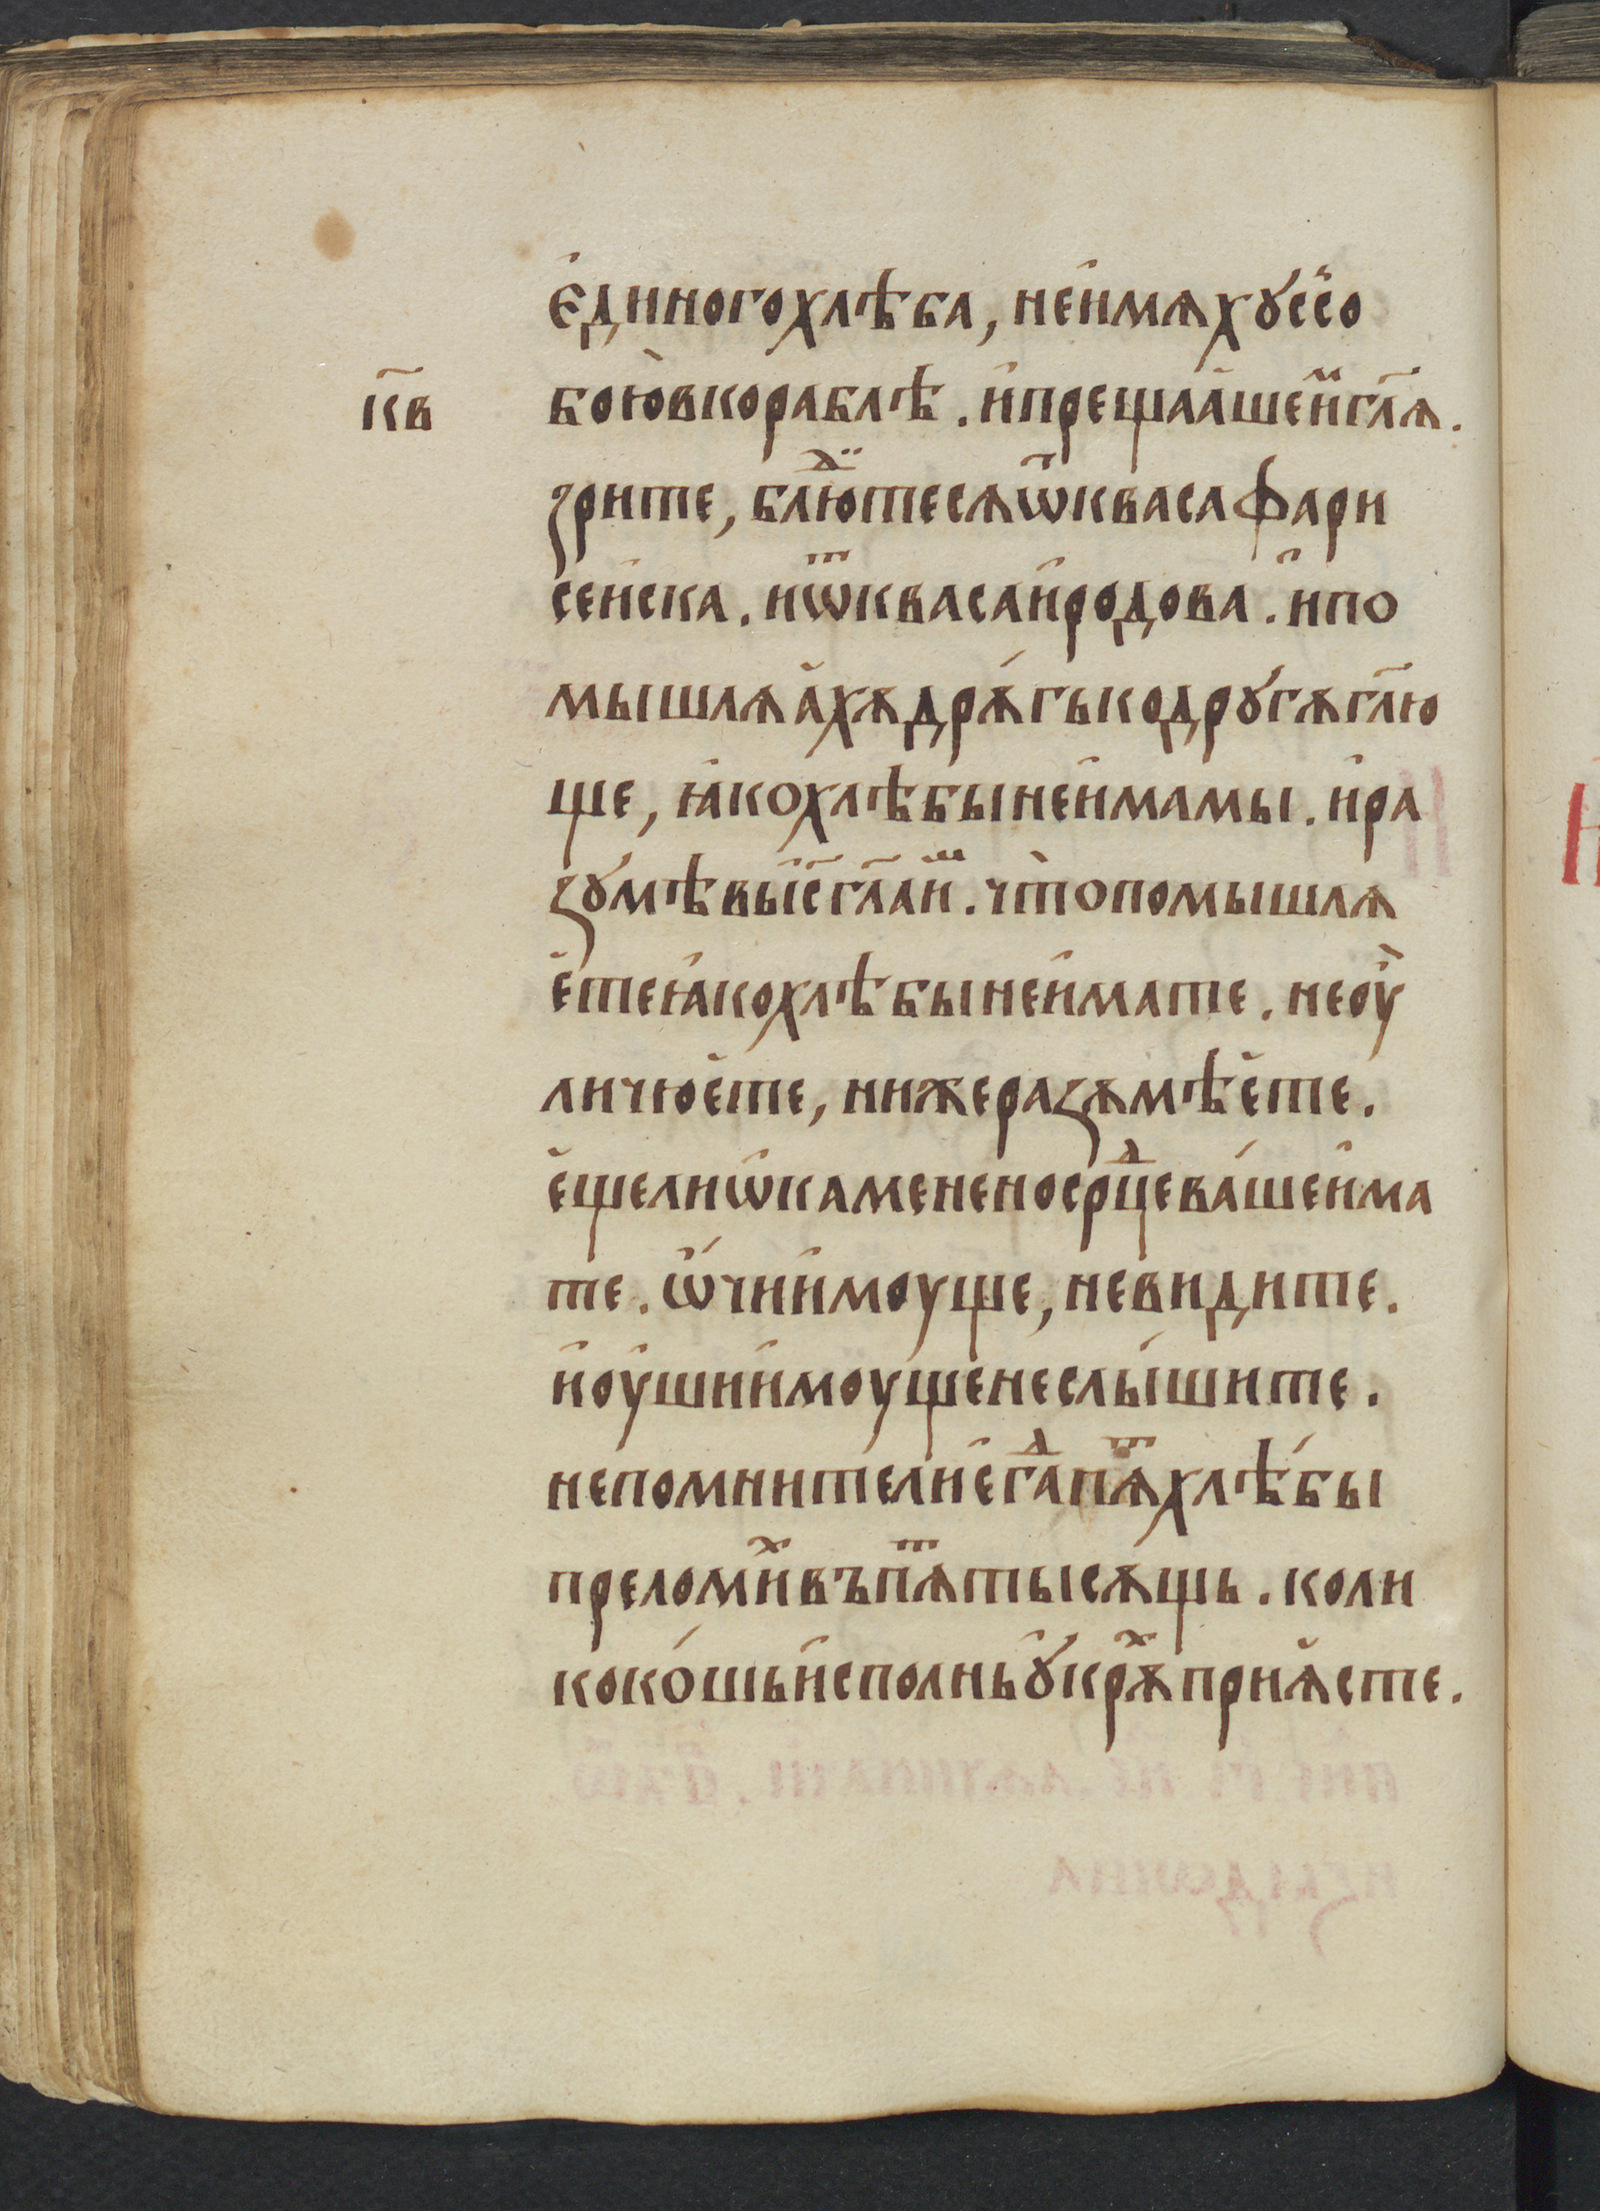 є҆диногохлѣба, неи҆мѧхꙋссо
к҃в
бою҆вкораблѣ . и҆прещаа҆шеи҆мгл҃ѧ .
зрите, блюⷣ҆тесѧѿквасафари
сеи҆ска . иѿⷮквасаи҆родова . и҆по
мышлѧа҆хѫдрѫ́гъкодрꙋ́гѫгл҃ю
ще, ꙗ҆кохлѣбынеи҆мамы . и҆ра
зꙋмѣвыі҆с҃гл҃аиⷨ . что̀помышлѧ
є҆теꙗ҆кохлѣбынеи҆мате . неоу҆̀
личює҆те, нижеразѫмѣє҆те .
є҆щелиѡ҆каменносерⷣцева́шеи҆ма
те . ѡ҆́чии҆моуще, невидите .
и҆оу҆шии҆моущенеслы́шите .
непомнителиє҆гⷣапѧⷮхлѣ́бы
преломиⷯвъпѧⷮтысѧ́щь . коли
коко́шьи҆сполньꙋ҆крѫⷯприѧ҆сте .